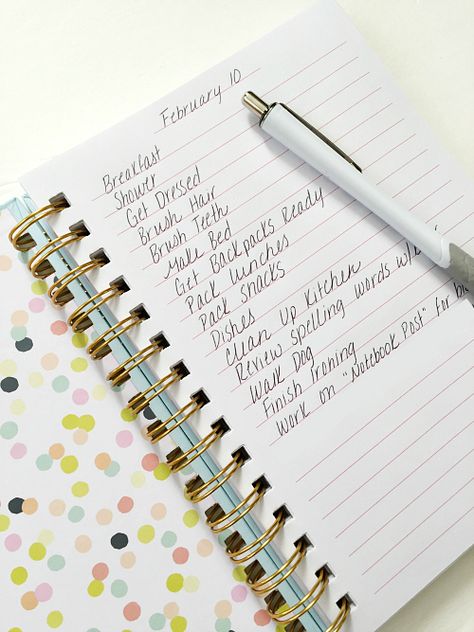 February 10
Breakfast
Shower
Get Dressed
Brush Hair
Brush Teeth
Make Bed
Get Backpacks Ready
Pack Lunches
Pack Snacks
Dishes
Clean Up Kitchen
Review Spelling Words w/
Walk Dog
Finish Ironing
Work on "Notebook Post" for